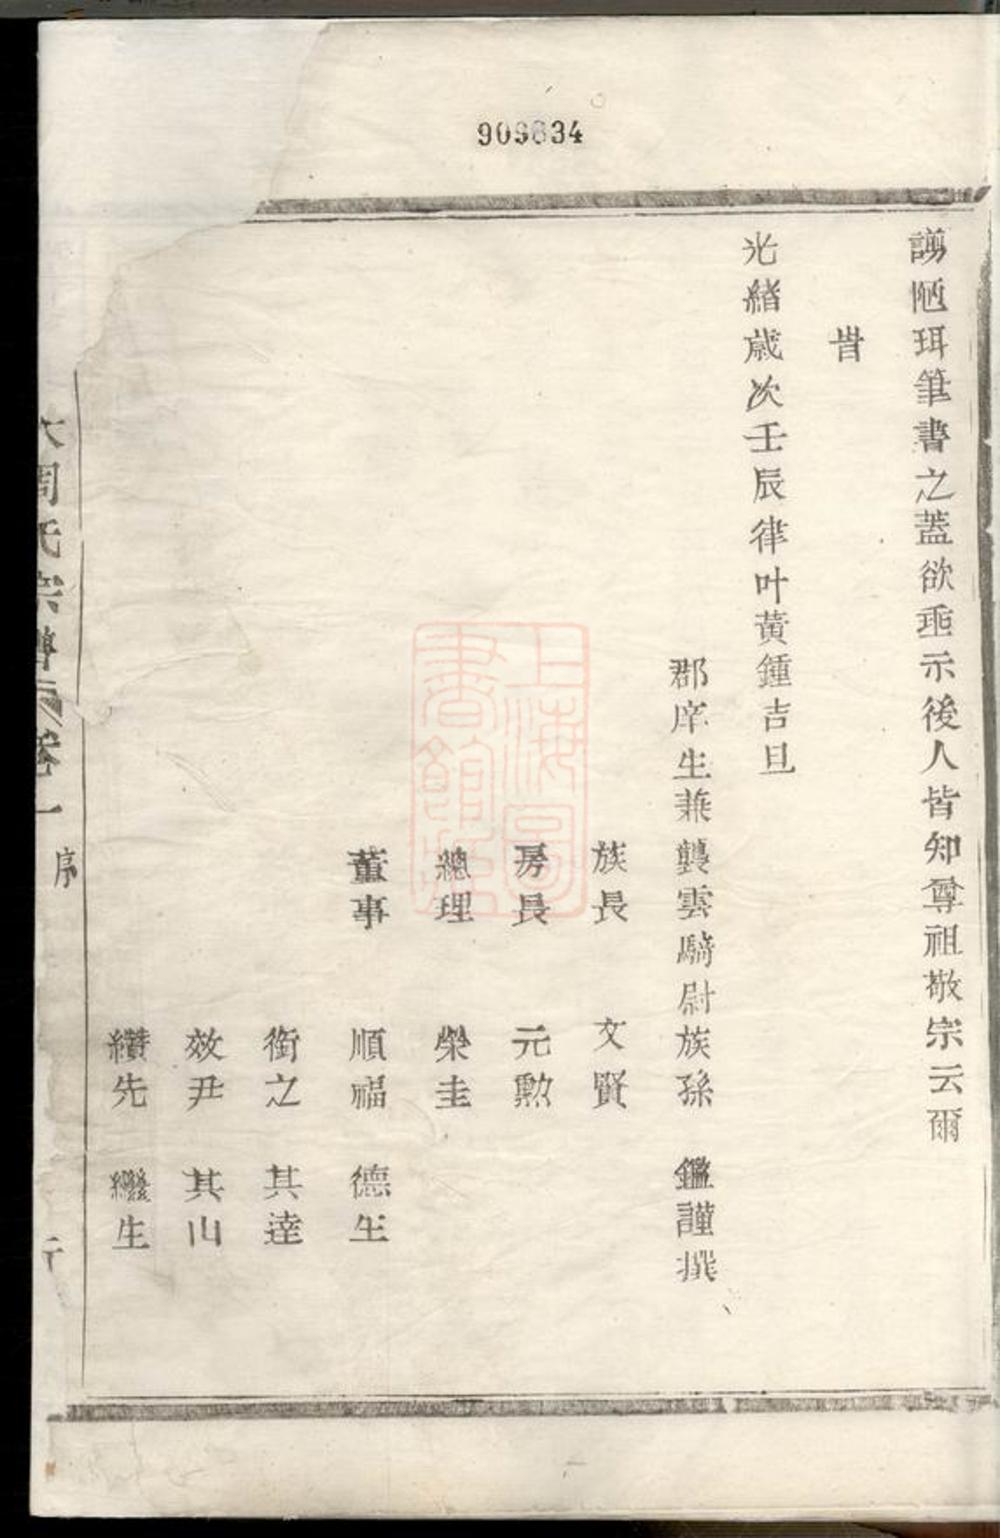 909634
謭陋珥筆書之蓋欲垂示後人皆知尊祖敬宗云爾
旹
光緒歲次壬辰律叶黃鍾吉旦
郡庠生兼襲雲騎尉族孫 鑑謹撰
族長 文賢
房長 元勲
總理 榮圭
董事 順福 德生
銜之 其達
效尹 其山
纘先 繼生
周氏宗譜 卷一 序
上海圖書館藏